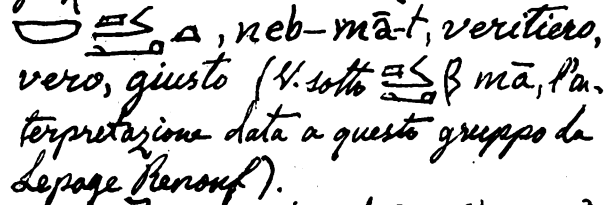 , neb-mā-t, veritiero,
vero, giusto (V. sotto β mā, l'in-
terpretazione data a questo gruppo da
Lepage Renouf).